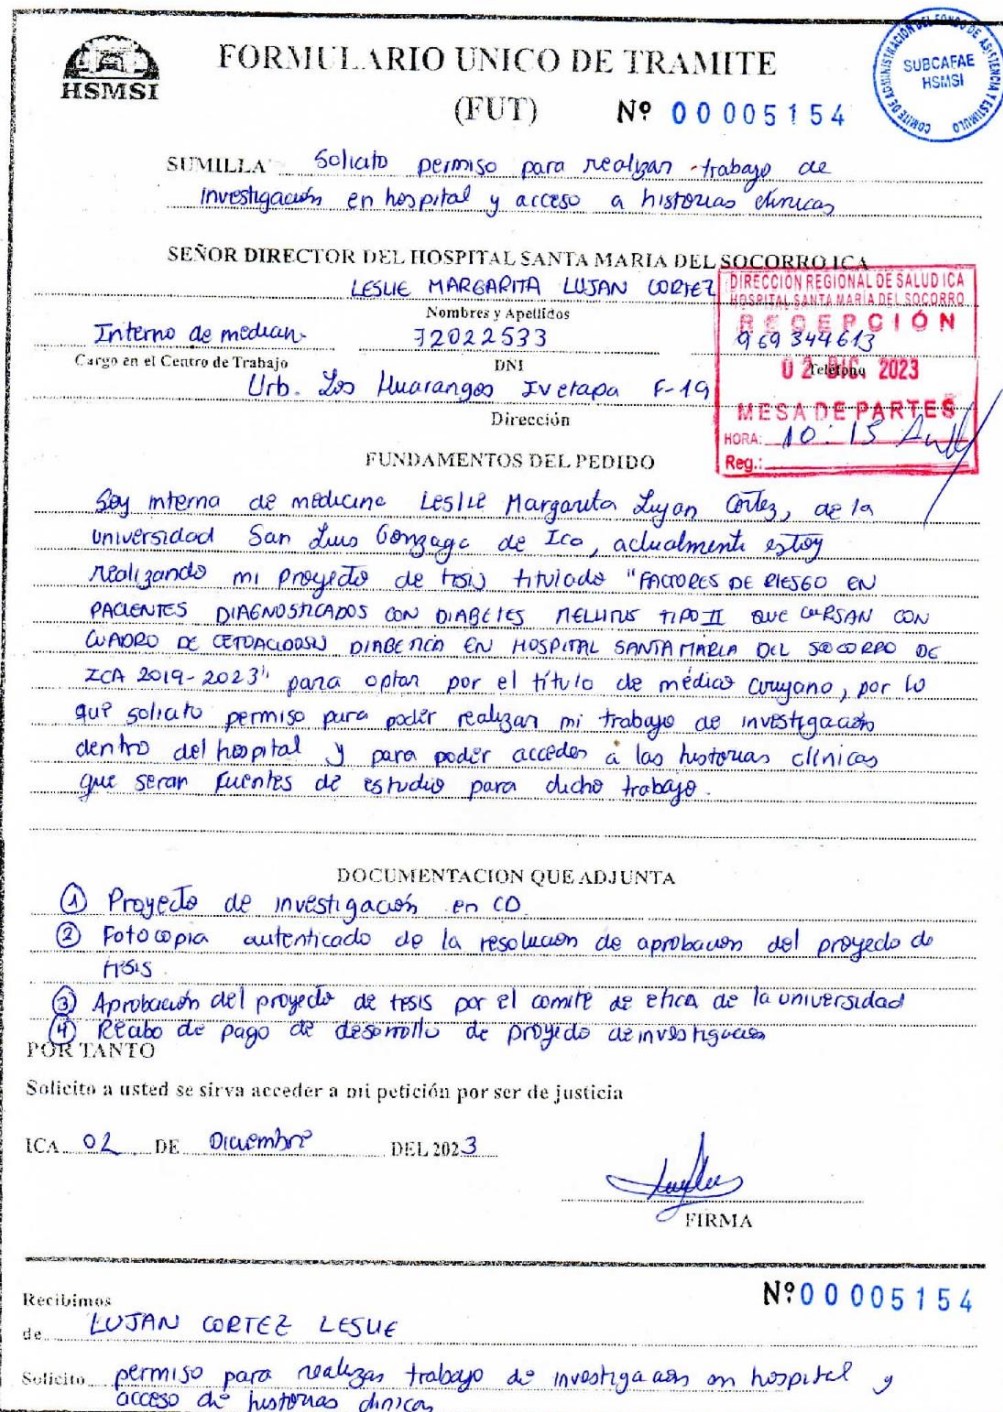 HSMSI
FORMULARIO UNICO DE TRAMITE
(FUT) Nº 00005154
COMITE DE ADMINISTRACIÓN DEL FONDO DE ASISTENCIA Y ESTIMULO
SUBCAFAE
HSMSI
SUMILLA Solicito permiso para realizar trabajo de
investigación en hospital y acceso a historias clínicas
SEÑOR DIRECTOR DEL HOSPITAL SANTA MARIA DEL SOCORRO ICA
LESLIE MARGARITA LUJAN CORTEZ
Nombres y Apellidos
Interno de medicina 72022533 969344613
Cargo en el Centro de Trabajo DNI Teléfono
Urb. Los Huarangos IV etapa F-19
Dirección
DIRECCIÓN REGIONAL DE SALUD ICA
HOSPITAL SANTA MARIA DEL SOCORRO
RECEPCIÓN
02 DIC 2023
MESA DE PARTES
HORA: 10:15
Reg.:
FUNDAMENTOS DEL PEDIDO
Soy interna de medicina Leslie Margarita Lujan Cortez, de la
universidad San Luis Gonzaga de Ica, actualmente estoy
realizando mi proyecto de tesis titulado "FACTORES DE RIESGO EN
PACIENTES DIAGNOSTICADOS CON DIABETES MELLITUS TIPO II QUE CURSAN CON
CUADRO DE CETOACIDOSIS DIABETICA EN HOSPITAL SANTA MARIA DEL SOCORRO DE
ICA 2019-2023" para optar por el título de médico cirujano, por lo
que solicito permiso para poder realizar mi trabajo de investigación
dentro del hospital y para poder acceder a las historias clínicas
que seran fuentes de estudio para dicho trabajo.
DOCUMENTACION QUE ADJUNTA
① Proyecto de investigación en CD
② Fotocopia autenticado de la resolución de aprobacion del proyecto de
tesis
③ Aprobación del proyecto de tesis por el comité de etica de la universidad
④ Recibo de pago de desarrollo de proyecto de investigación
POR TANTO
Solicito a usted se sirva acceder a mi petición por ser de justicia
ICA 02 DE Diciembre DEL 2023
FIRMA
Nº 00005154
Recibimos
de LUJAN CORTEZ LESLIE
Solicito permiso para realizar trabajo de investigación en hospital y
acceso de historias clínicas